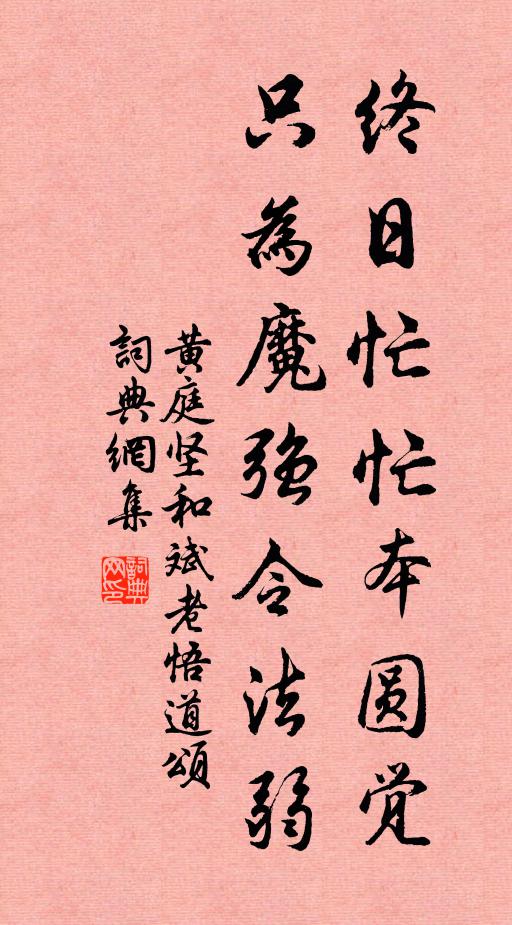 终日忙忙本圆觉
只為魔強令法弱
黄庭坚和斌老悟道頌
詞典網集
詞典網印